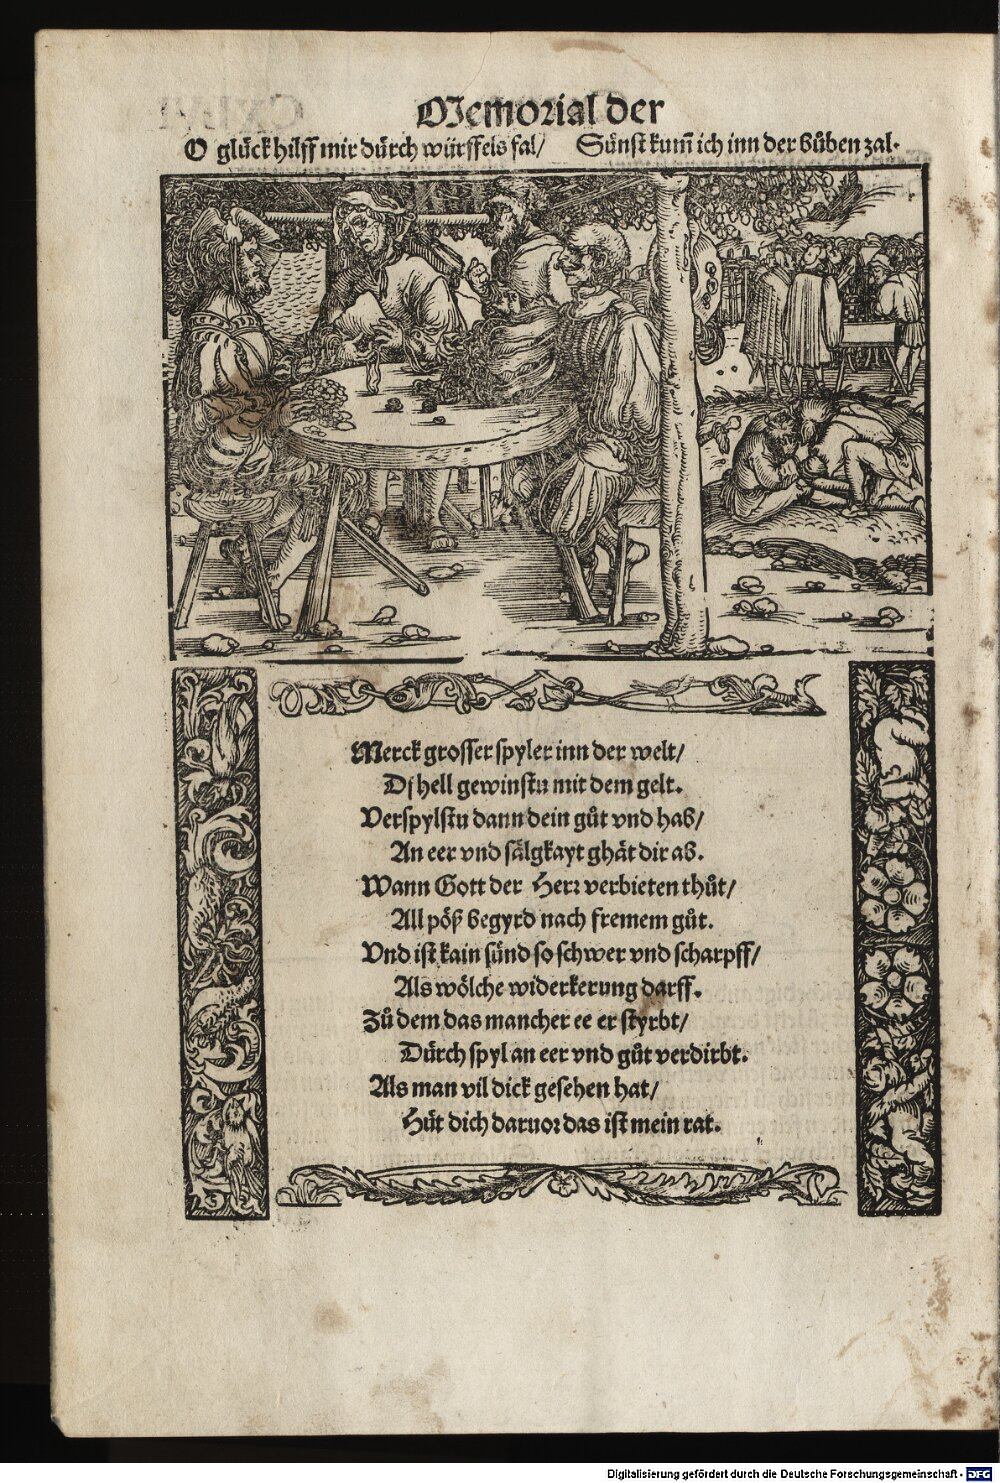 Memorial der
O glück hilff mir dürch würffels fal/ Sünst kum̃ ich inn der bůben zal.
Merck grosser spyler inn der welt/
Dj hell gewinstu mit dem gelt.
Verspylstu dann dein gůt vnd hab/
An eer vnd sälgkayt ghät dir ab.
Wann Gott der Herr verbieten thůt/
All pöß begyrd nach fremem gůt.
Vnd ist kain sünd so schwer vnd scharpff/
Als wölche widerkerung darff.
Zů dem das mancher ee er styrbt/
Dürch spyl an eer vnd gůt verdirbt.
Als man vil dick gesehen hat/
Hüt dich daruor das ist mein rat.
Digitalisierung gefördert durch die Deutsche Forschungsgemeinschaft - DFG